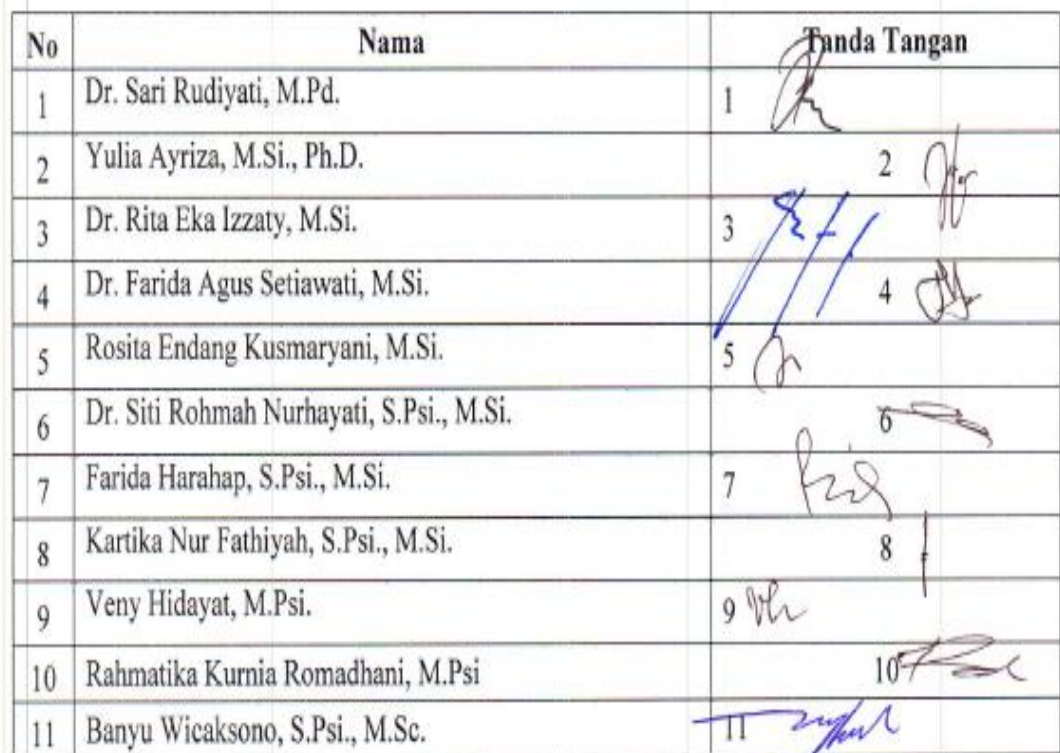 No Nama Tanda Tangan
1 Dr. Sari Rudiyati, M.Pd. 1
2 Yulia Ayriza, M.Si., Ph.D. 2
3 Dr. Rita Eka Izzaty, M.Si. 3
4 Dr. Farida Agus Setiawati, M.Si. 4
5 Rosita Endang Kusmaryani, M.Si. 5
6 Dr. Siti Rohmah Nurhayati, S.Psi., M.Si. 6
7 Farida Harahap, S.Psi., M.Si. 7
8 Kartika Nur Fathiyah, S.Psi., M.Si. 8
9 Veny Hidayat, M.Psi. 9
10 Rahmatika Kurnia Romadhani, M.Psi 10
11 Banyu Wicaksono, S.Psi., M.Sc. 11